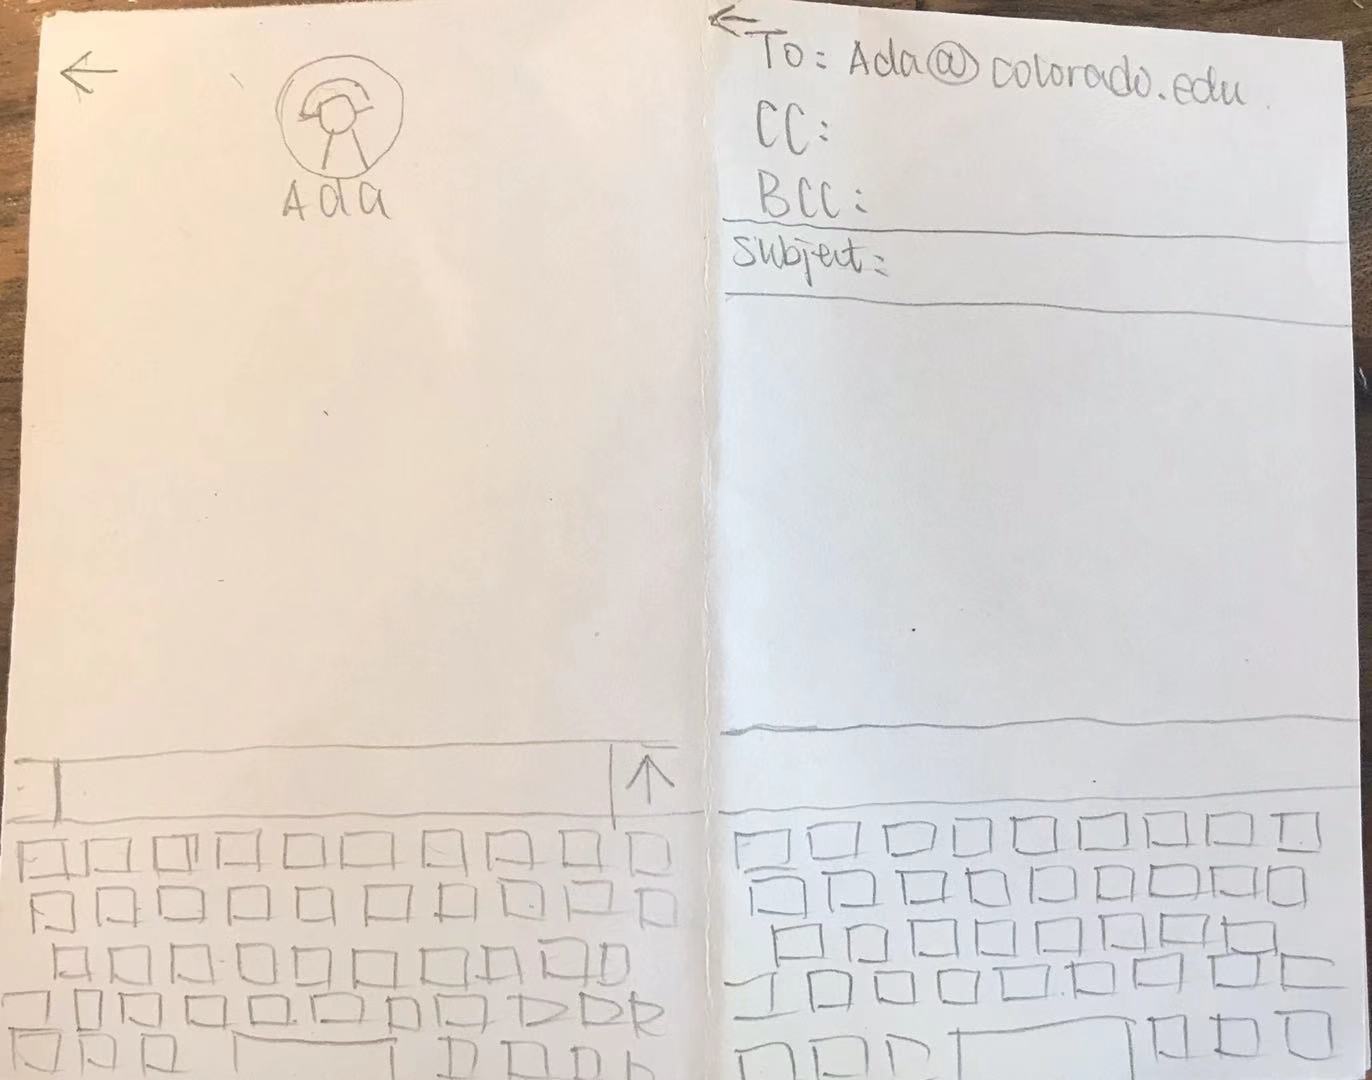 Ada
To: Ada@colorado.edu
CC:
BCC:
Subject: